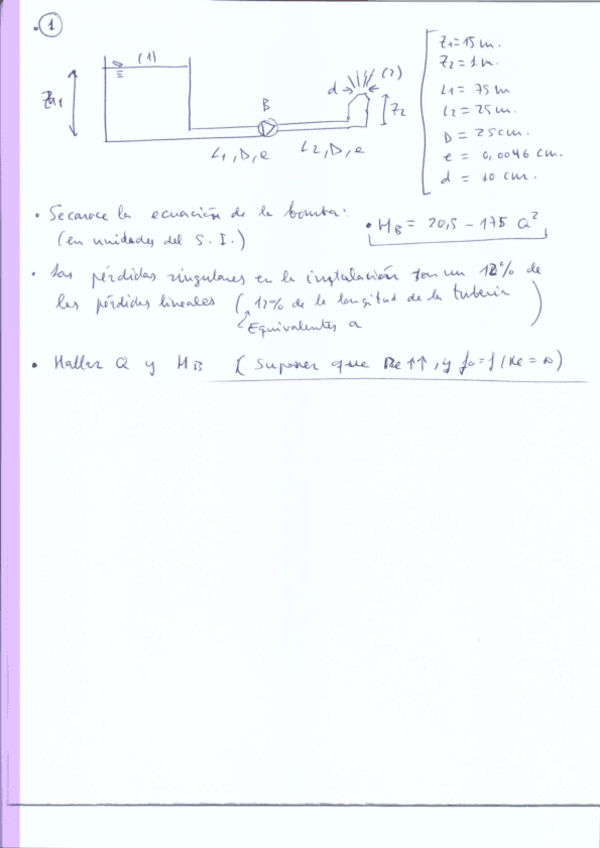 1
(1)
Z1
B
d
(2)
Z2
L1, D, e
L2, D, e
Z1 = 15 m.
Z2 = 1 m.
L1 = 75 m
L2 = 25 m.
D = 25 cm.
e = 0,0046 cm.
d = 10 cm.
• Se conoce la ecuación de la bomba:
(en unidades del S. I.)
• HB = 20,5 - 175 Q²
• Las pérdidas singulares en la instalación son un 12% de
las pérdidas lineales ( 12% de la longitud de la tubería )
Equivalentes a
• Hallar Q y HB ( Suponer que Re ↑↑, y f0 = f / Re = ∞ )